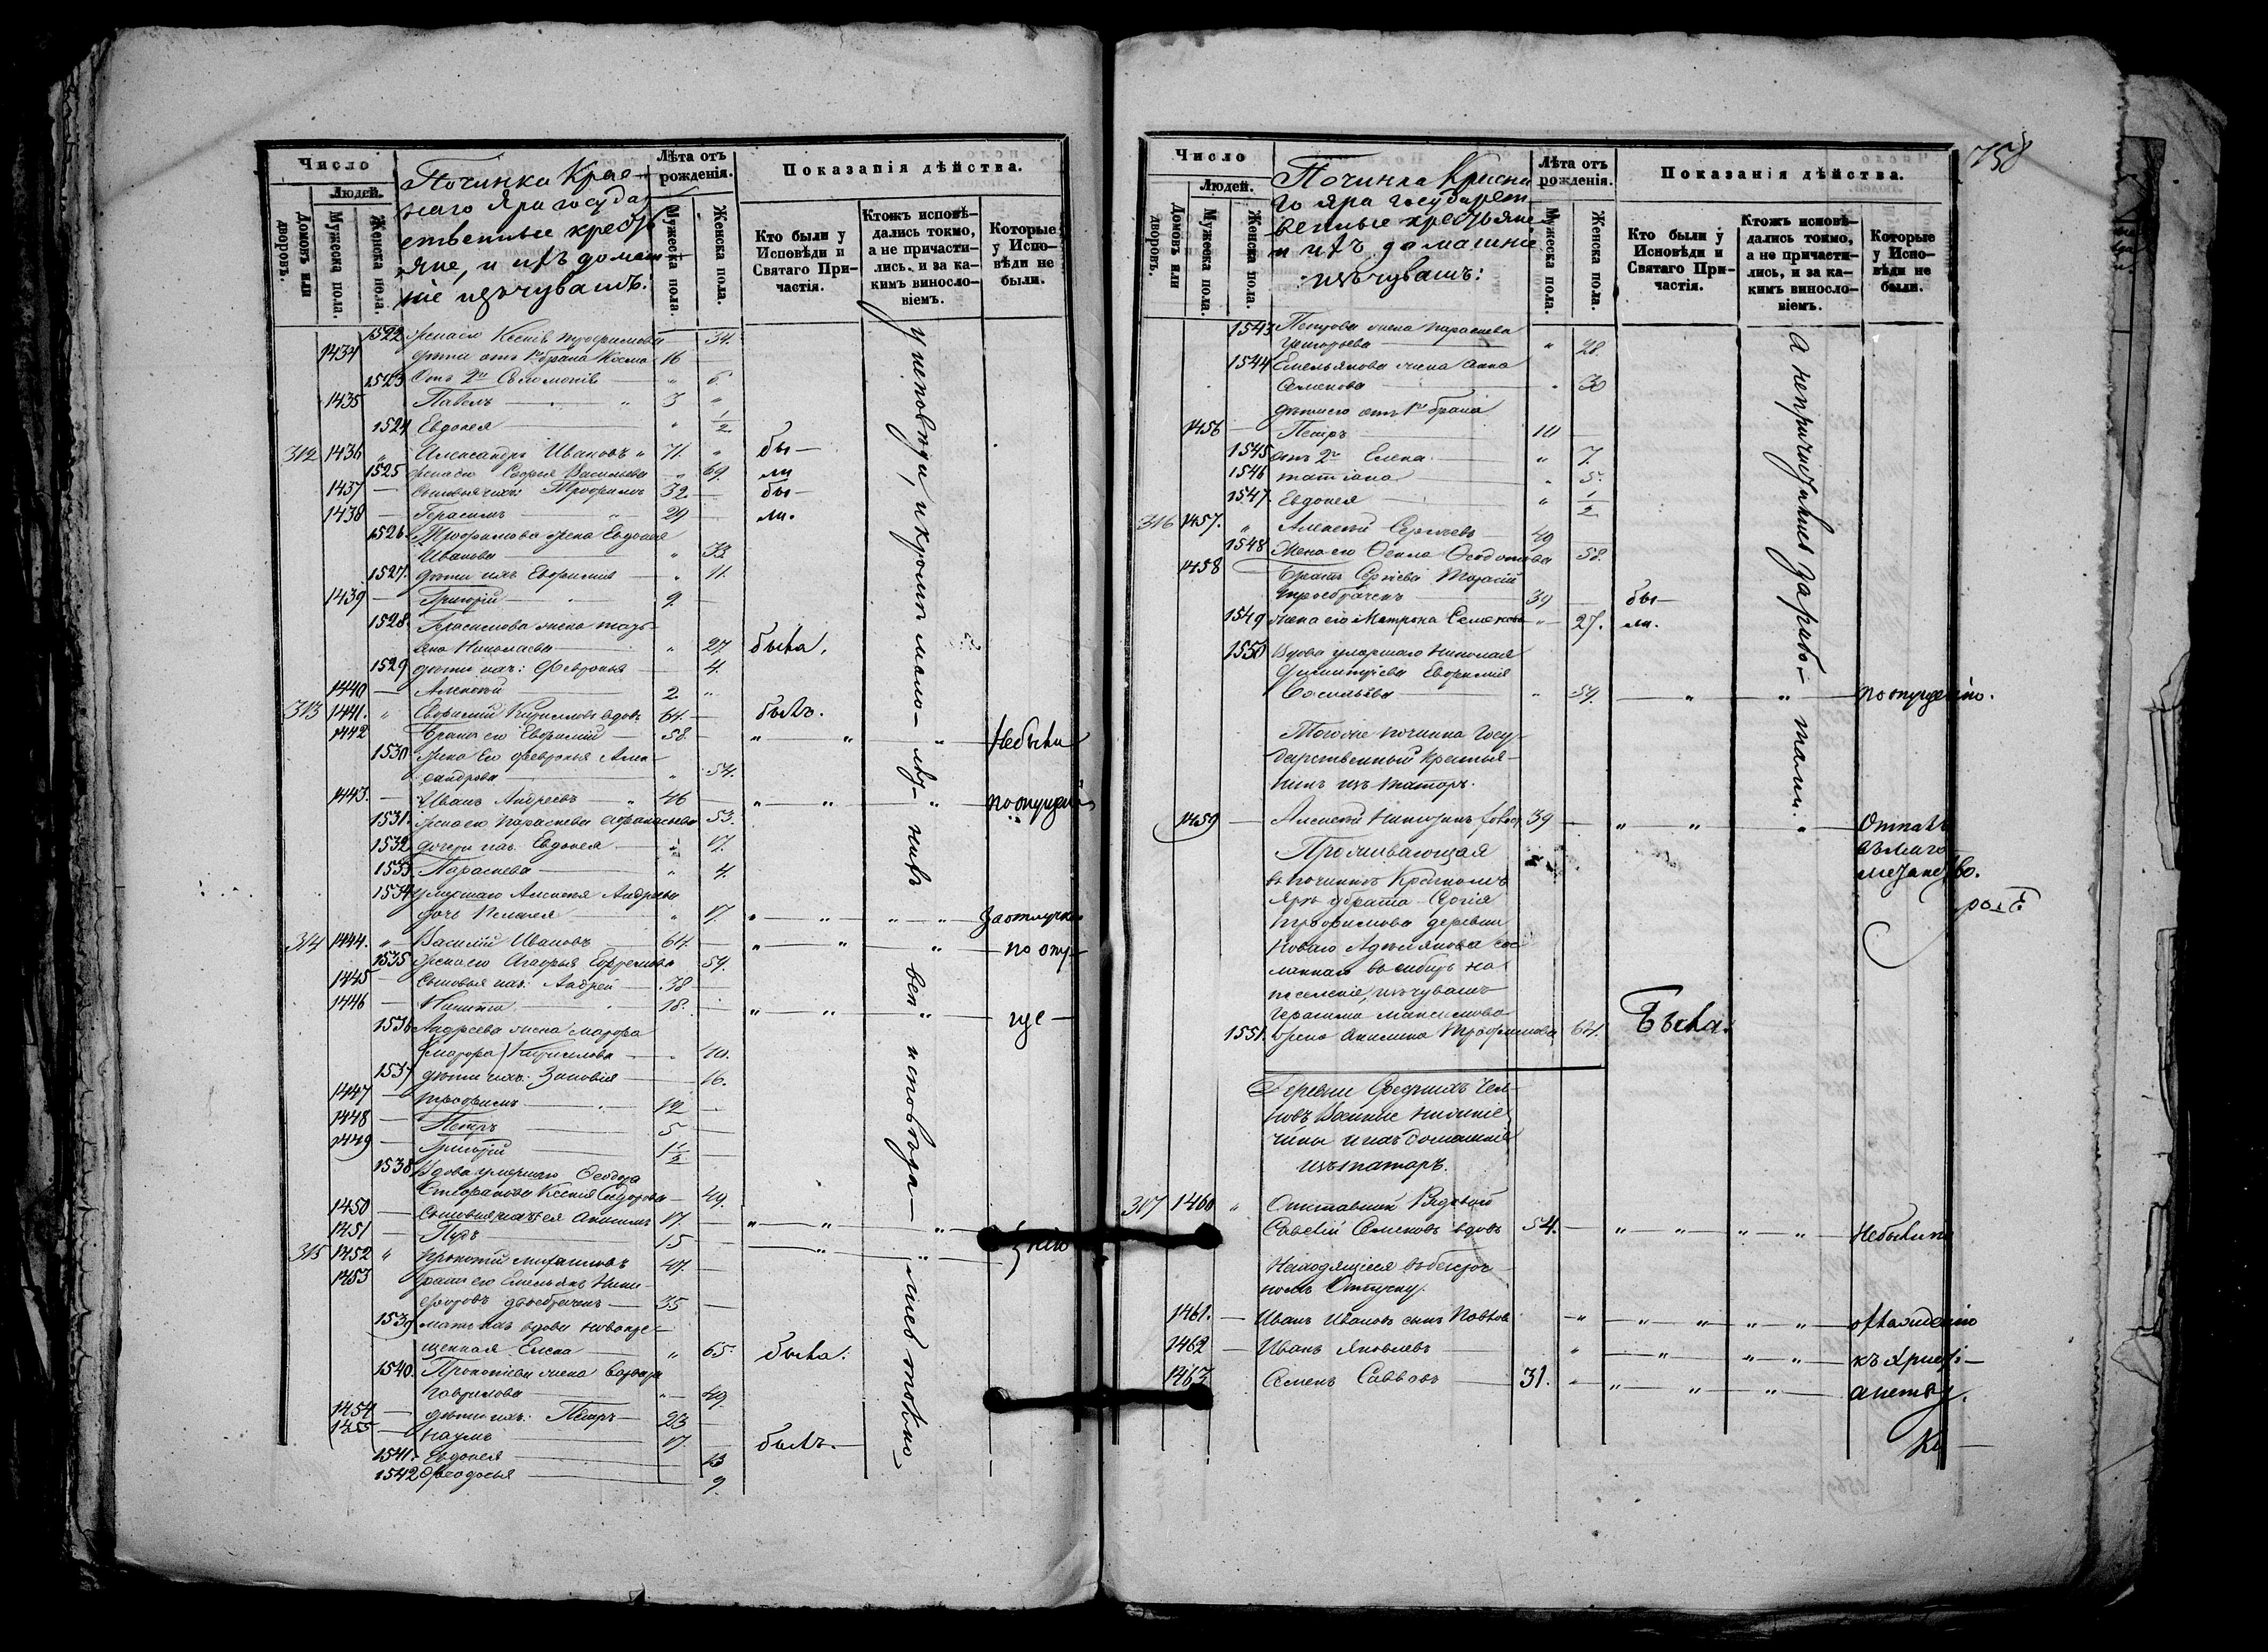 Число
Людей.
Домовъ или дворовъ.
Мужеска пола.
Женска пола.
Починка Крас-
наго Яра государ
ственные кресть
яне, и ихъ домаш
ніе изъ чувашъ:
Лѣта отъ рожденія.
Мужеска пола.
Женска пола.
Показанія дѣйства.
Кто были у Исповѣди и Святаго Причастія.
Ктожъ исповѣдались токмо, а не причастились, и за какимъ винословіемъ.
Которые у Исповѣди не были.
1522 Жена его Ксенія Трофимова — 34.
1434 Дѣти отъ 1го брака Косма 16 —
1523 Отъ 2го Соломонія — " 6.
1435 Павелъ — " 3 "
1524 Евдокея — " 1/2
312 1436 " Александръ Ивановъ " 71. " бы-
1525 Жена его Софья Васильева — " 69. ли
1437 — Сыновья ихъ: Трофимъ 32 — бы-
1438 — Герасимъ — 29 — ли.
1526 Трофимова жена Евдокея
Иванова — " 33
1527. Дѣти ихъ Евфимія — " 11.
1439 — Григорій — 9. —
1528. Герасимова жена Тать-
яна Николаева — " 27 была.
1529 Дѣти ихъ: Февронья — 4.
1440 — Алексѣй — 2. "
313 1441. " Евфимій Кириловъ вдовъ 64. — былъ.
1442 Братъ его Евфимій — 58. — " " " Небыли
1530 Жена его Февронья Алек-
сандрова — " 54.
1443. — Иванъ Андреевъ — " 46 — " " " по опущенію
1531. Жена его Параскева Афанасьева 53.
1532 Дочери ихъ: Евдокея — " 17.
1533 Параскева — " 4.
1534 Умершаго Алексея Андреева
дочь Пелагея — " 17. " " " " За отлучкою
314 1444. " Василій Ивановъ — 64. — " " " по опу-
1535 Жена его Агафья Ефремова 59.
1445 — Сыновья ихъ: Андрей — 38 —
1446 — Никита — 18. — " " " ще-
1536 Андреева жена Мавра
(Мавра) Кирилова — " 40.
1537 Дѣти ихъ: Зиновія — 16.
1447 — Трофимъ — 12 —
1448 — Петръ — 5 —
1449 — Григорій — 1 1/2 —
1538 Вдова умершаго Феодора
Стефанова Ксенія Сидорова — 49.
1450 — Сыновья ея Акимъ 17. — " " "
1451 — Пудъ 15 — нію
315 1452 " Прокопій Михайловъ 47. —
1453 Братъ его Емельянъ Ники-
форовъ двоебраченъ — 35 —
1539 Мать ихъ вдова новокре-
щенная Елена — " 65. была.
1540. Прокопіева жена Варвара
Гаврилова — " 49.
1454 — Дѣти ихъ: Петръ — 23
1455 — Наумъ — 17. — былъ.
1541. Евдокея — 13
1542 Феодосья — 9.
у исповѣди, и кромѣ мало-лѣт-нихъ всѣ исповѣда-лись только-
758
Число
Людей.
Домовъ или дворовъ.
Мужеска пола.
Женска пола.
Починка Красна
го яра государст
венные крестьяне
и ихъ домашніе
изъ чувашъ:
Лѣта отъ рожденія.
Мужеска пола.
Женска пола.
Показанія дѣйства.
Кто были у Исповѣди и Святаго Причастія.
Ктожъ исповѣдались токмо, а не причастились, и за какимъ винословіемъ.
Которые у Исповѣди не были.
1543 Петрова жена Параскева
Григорьева — " 28.
1544 Емельянова жена Анна
Семенова — " 30
Дѣти его отъ 1го брака
1456 — Петръ — 10 —
1545 отъ 2го Елена — " 7.
1546 Татіана — " 5.
1547. Евдокея — " 1/2
316 1457. " Алексѣй Сергѣевъ — 49 —
1548 Жена его Фекла Федотова 58.
1458 Братъ Сергѣева Тарасій
троебраченъ — 39 — бы-
1549 Жена его Матрона Семенова " 27. ли.
1550 Вдова умершаго Николая
Димитріева Евфимія
Васильева — " 59. — " " по опущенію.
Тогоже починка Госу-
дарственный крестья-
нинъ изъ татаръ.
1459 — Алексѣй Никитинъ 39 — " " " Отпалъ
въ маго
метанство.
Проживающая
въ починкѣ Красномъ
Ярѣ у брата Сергія
Трофимова деревни
Новаго Адельякова сос
ланнаго въ сибирь на
поселеніе, изъ чувашъ
Герасима Максимова
1551. Жена Акилина Трофимова 64. Была.
Деревни Среднихъ Чел-
новъ Военные нижніе
чины и ихъ домашніе
изъ татаръ.
317 1460 " Отставный Рядовой
Савелій Семеновъ вдовъ 54. — " " " " Небыли по
Находящіеся въ безсроч-
номъ Отпуску.
1461. — Иванъ Ивановъ сынъ — " " " " " охлажденію
1462 — Иванъ Яковлевъ — " " " " къ христі-
1463 Семенъ Саввовъ — 31. " " " " анству.
а непричастились за рабо-тами.